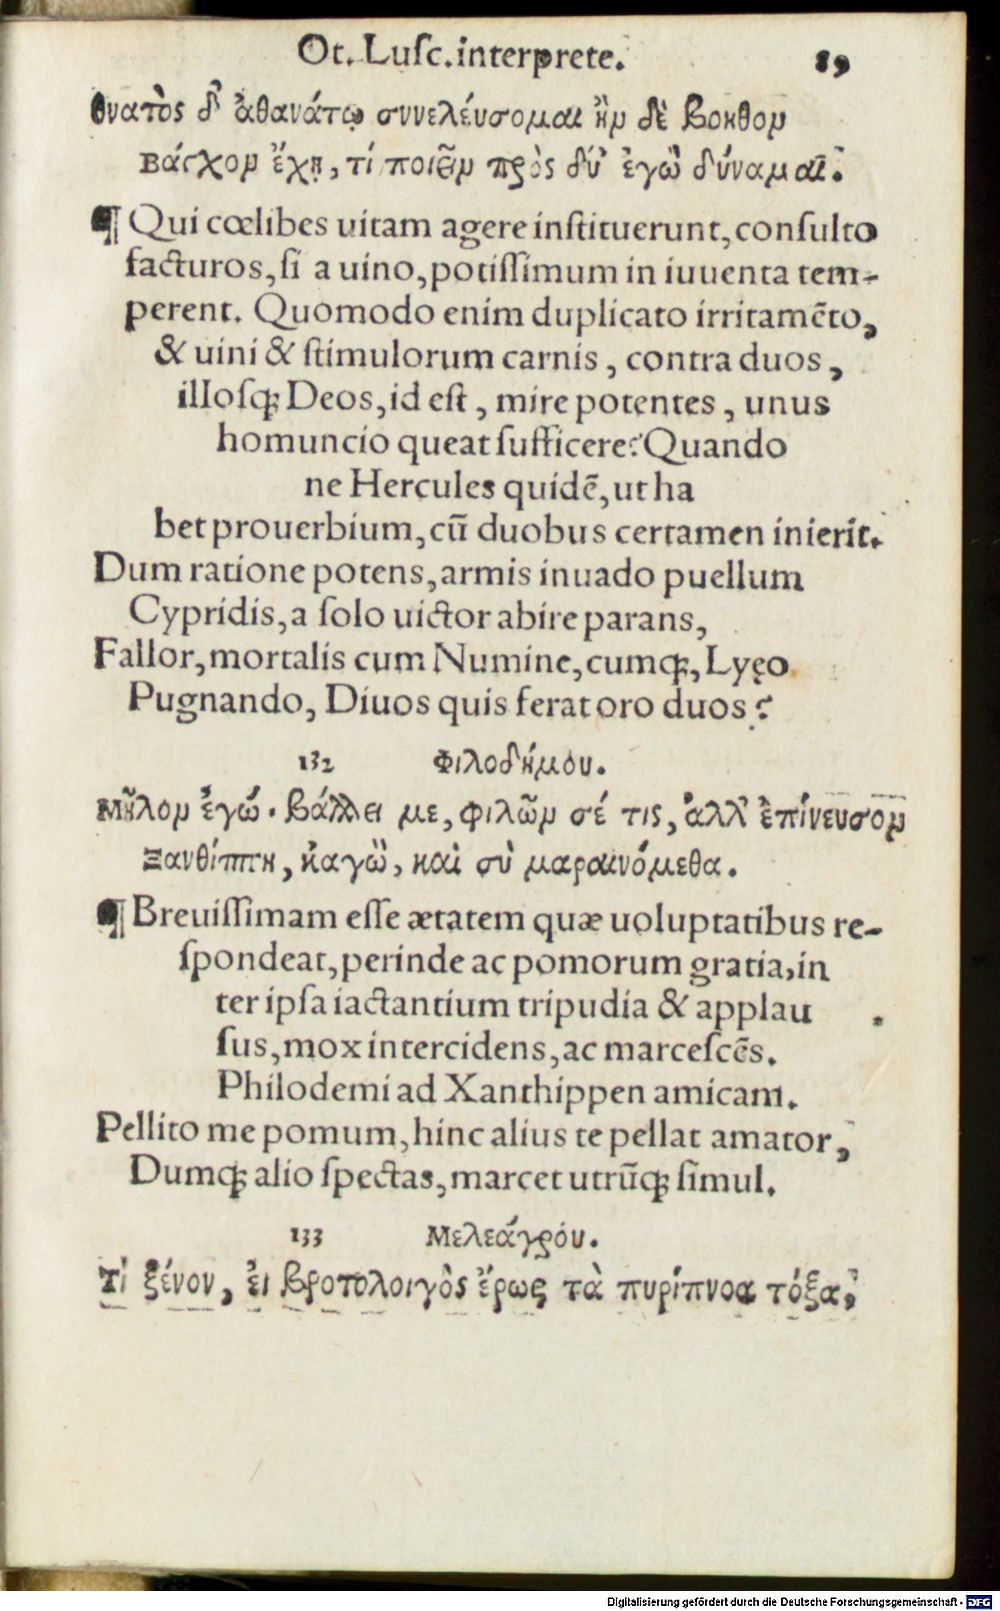 Ot. Luſc. interprete. 89
θνατὸς δ' ἀθανάτῳ συνελέυσομαι ἢν δὲ βοηθον
βάκχον ἔχῃ, τί ποιεῖν πρὸς δύ' ἐγὼ δύναμαι;
¶ Qui cœlibes uitam agere inſtituerunt, conſulto
facturos, ſi a uino, potiſſimum in iuuenta tem-
perent. Quomodo enim duplicato irritamēto,
& uini & ſtimulorum carnis, contra duos,
illoſq; Deos, id eſt, mire potentes, unus
homuncio queat ſufficere? Quando
ne Hercules quidē, ut ha
bet prouerbium, cū duobus certamen inierit.
Dum ratione potens, armis inuado puellum
Cypridis, a ſolo uictor abire parans,
Fallor, mortalis cum Numine, cumq;, Lyęo
Pugnando, Diuos quis ferat oro duos?
132 Φιλοδήμου.
Μῆλον ἐγώ. βάλλει με, φιλῶν σέ τις, ἀλλ' ἐπίνευσον
Ξανθίππη, κἀγὼ, καὶ σὺ μαραινόμεθα.
¶ Breuiſſimam eſſe ætatem quæ uoluptatibus re-
ſpondeat, perinde ac pomorum gratia, in
ter ipſa iactantium tripudia & applau
ſus, mox intercidens, ac marceſcēs.
Philodemi ad Xanthippen amicam.
Pellito me pomum, hinc alius te pellat amator,
Dumq; alio ſpectas, marcet utrūq; ſimul.
133 Μελεάγρου.
Τί ξένον, εἰ βροτολοιγὸς ἔρως τὰ πυρίπνοα τόξα,
Digitalisierung gefördert durch die Deutsche Forschungsgemeinschaft - DFG